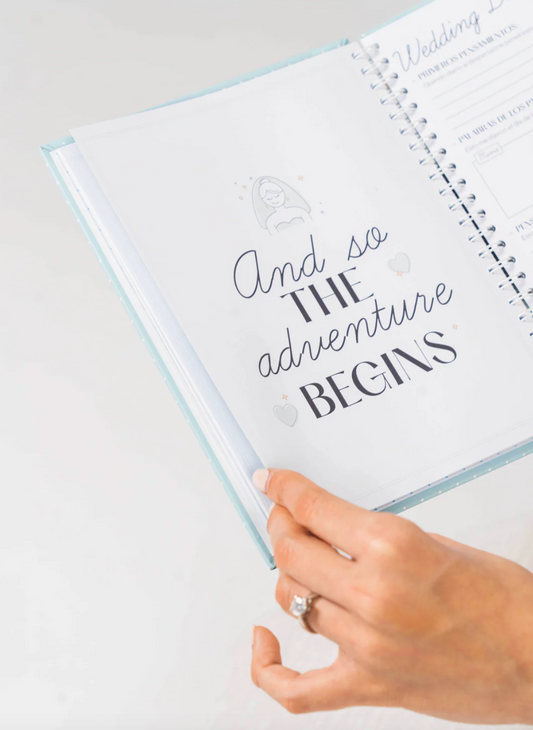 And so
THE
adventure
BEGINS
Wedding
PRIMEROS PENSAMIENTOS
PALABRAS DE LOS